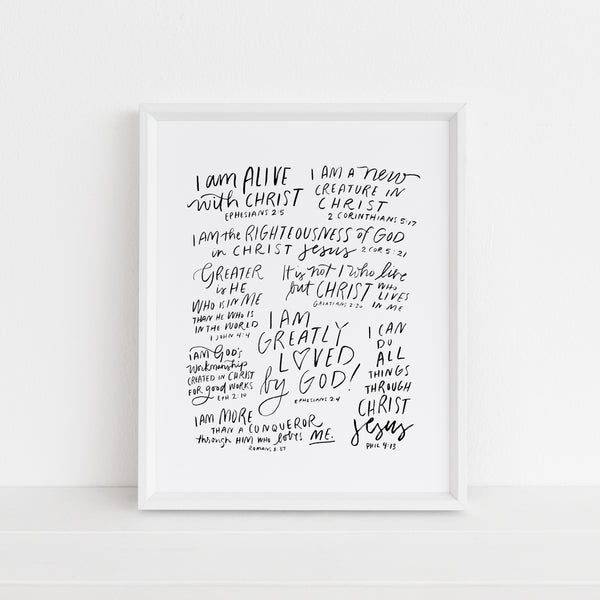 I am ALIVE
with CHRIST
EPHESIANS 2:5
I AM A new
CREATURE IN
CHRIST
2 CORINTHIANS 5:17
I AM the RIGHTEOUSNESS of GOD
in CHRIST Jesus 2 COR 5:21
GREATER
is HE
WHO IS IN ME
THAN HE WHO IS
IN THE WORLD
1 JOHN 4:4
It is not I who live
but CHRIST WHO
LIVES
IN ME
GALATIANS 2:20
I AM
GREATLY
LOVED
by GOD!
EPHESIANS 2:4
I AM GOD'S
Workmanship
CREATED IN CHRIST
FOR good WORKS
EPH 2:10
I CAN
DO
ALL
THINGS
THROUGH
CHRIST
Jesus
PHIL 4:13
I AM MORE
THAN A CONQUEROR
through HIM WHO loves ME.
ROMANS 8:37